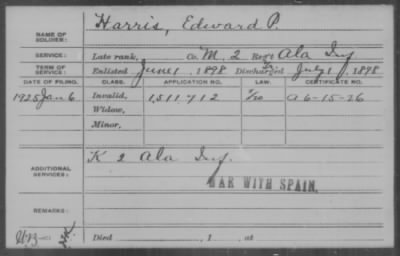 NAME OF SOLDIER: Harris, Edward P.
SERVICE: Late rank, Co. M. 2 Reg't Ala Inf
TERM OF SERVICE: Enlisted June 1, 1898 Discharged July 1, 1898
DATE OF FILING. CLASS. APPLICATION NO. LAW. CERTIFICATE NO.
1925 Jan 6 Invalid, 1,511,712 A 6-15-26
Widow,
Minor,
ADDITIONAL SERVICES: K 2 Ala Inf.
WAR WITH SPAIN.
REMARKS:
Died , 1 , at